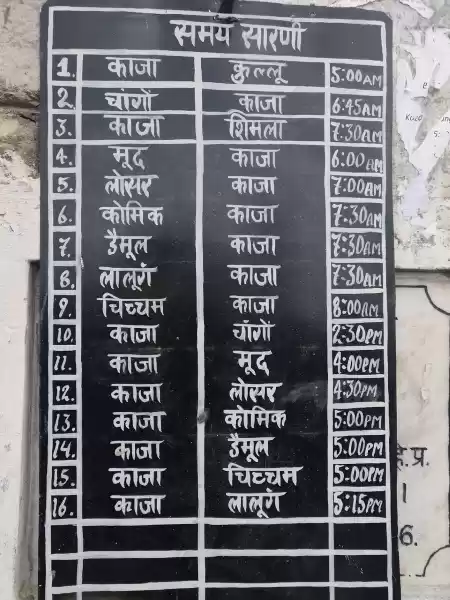 समय सारणी
1. काजा कुल्लू 5:00AM
2. चांगो काजा 6:45AM
3. काजा शिमला 7:30AM
4. मूद काजा 6:00AM
5. लोसर काजा 7:00AM
6. कोमिक काजा 7:30AM
7. डैमूल काजा 7:30AM
8. लालूंग काजा 7:30AM
9. चिच्चम काजा 8:00AM
10. काजा चांगो 2:30PM
11. काजा मूद 4:00PM
12. काजा लोसर 4:30PM
13. काजा कोमिक 5:00PM
14. काजा डैमूल 5:00PM
15. काजा चिच्चम 5:00PM
16. काजा लालूंग 5:15PM
हि.प्र.
6.